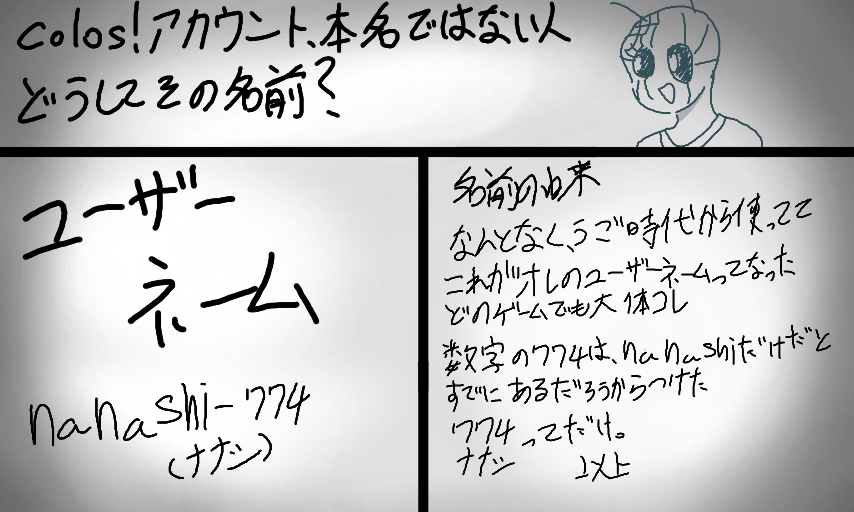 colos!アカウント、本名ではない人
どうしてその名前?
ユーザー
ネーム
nanashi-774
(ナナシ)
名前の由来
なんとなく、うご時代から使ってて
これがオレのユーザーネームってなった
どのゲームでも大体コレ
数字の774は、nanashiだけだと
すでにあるだろうからつけた
774ってだけ。
ナナシ 以上